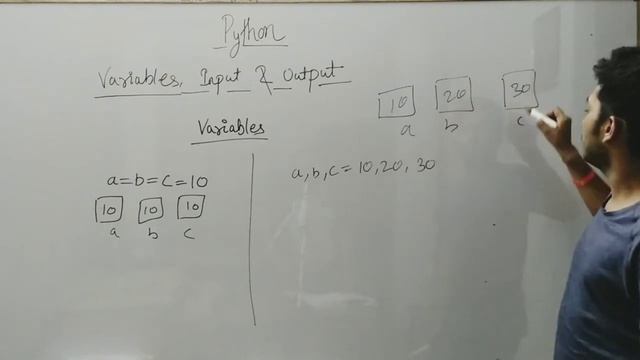 Python
Variables, Input & Output
Variables
a=b=c=10
10 10 10
a b c
10 20 30
a b c
a, b, c = 10, 20, 30